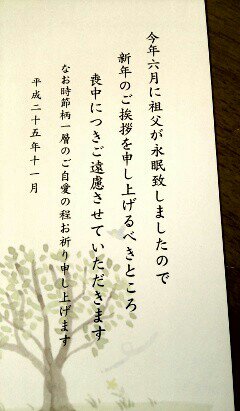 今年六月に祖父が永眠致しましたので
新年のご挨拶を申し上げるべきところ
喪中につきご遠慮させていただきます
なお時節柄一層のご自愛の程お祈り申し上げます
平成二十五年十一月